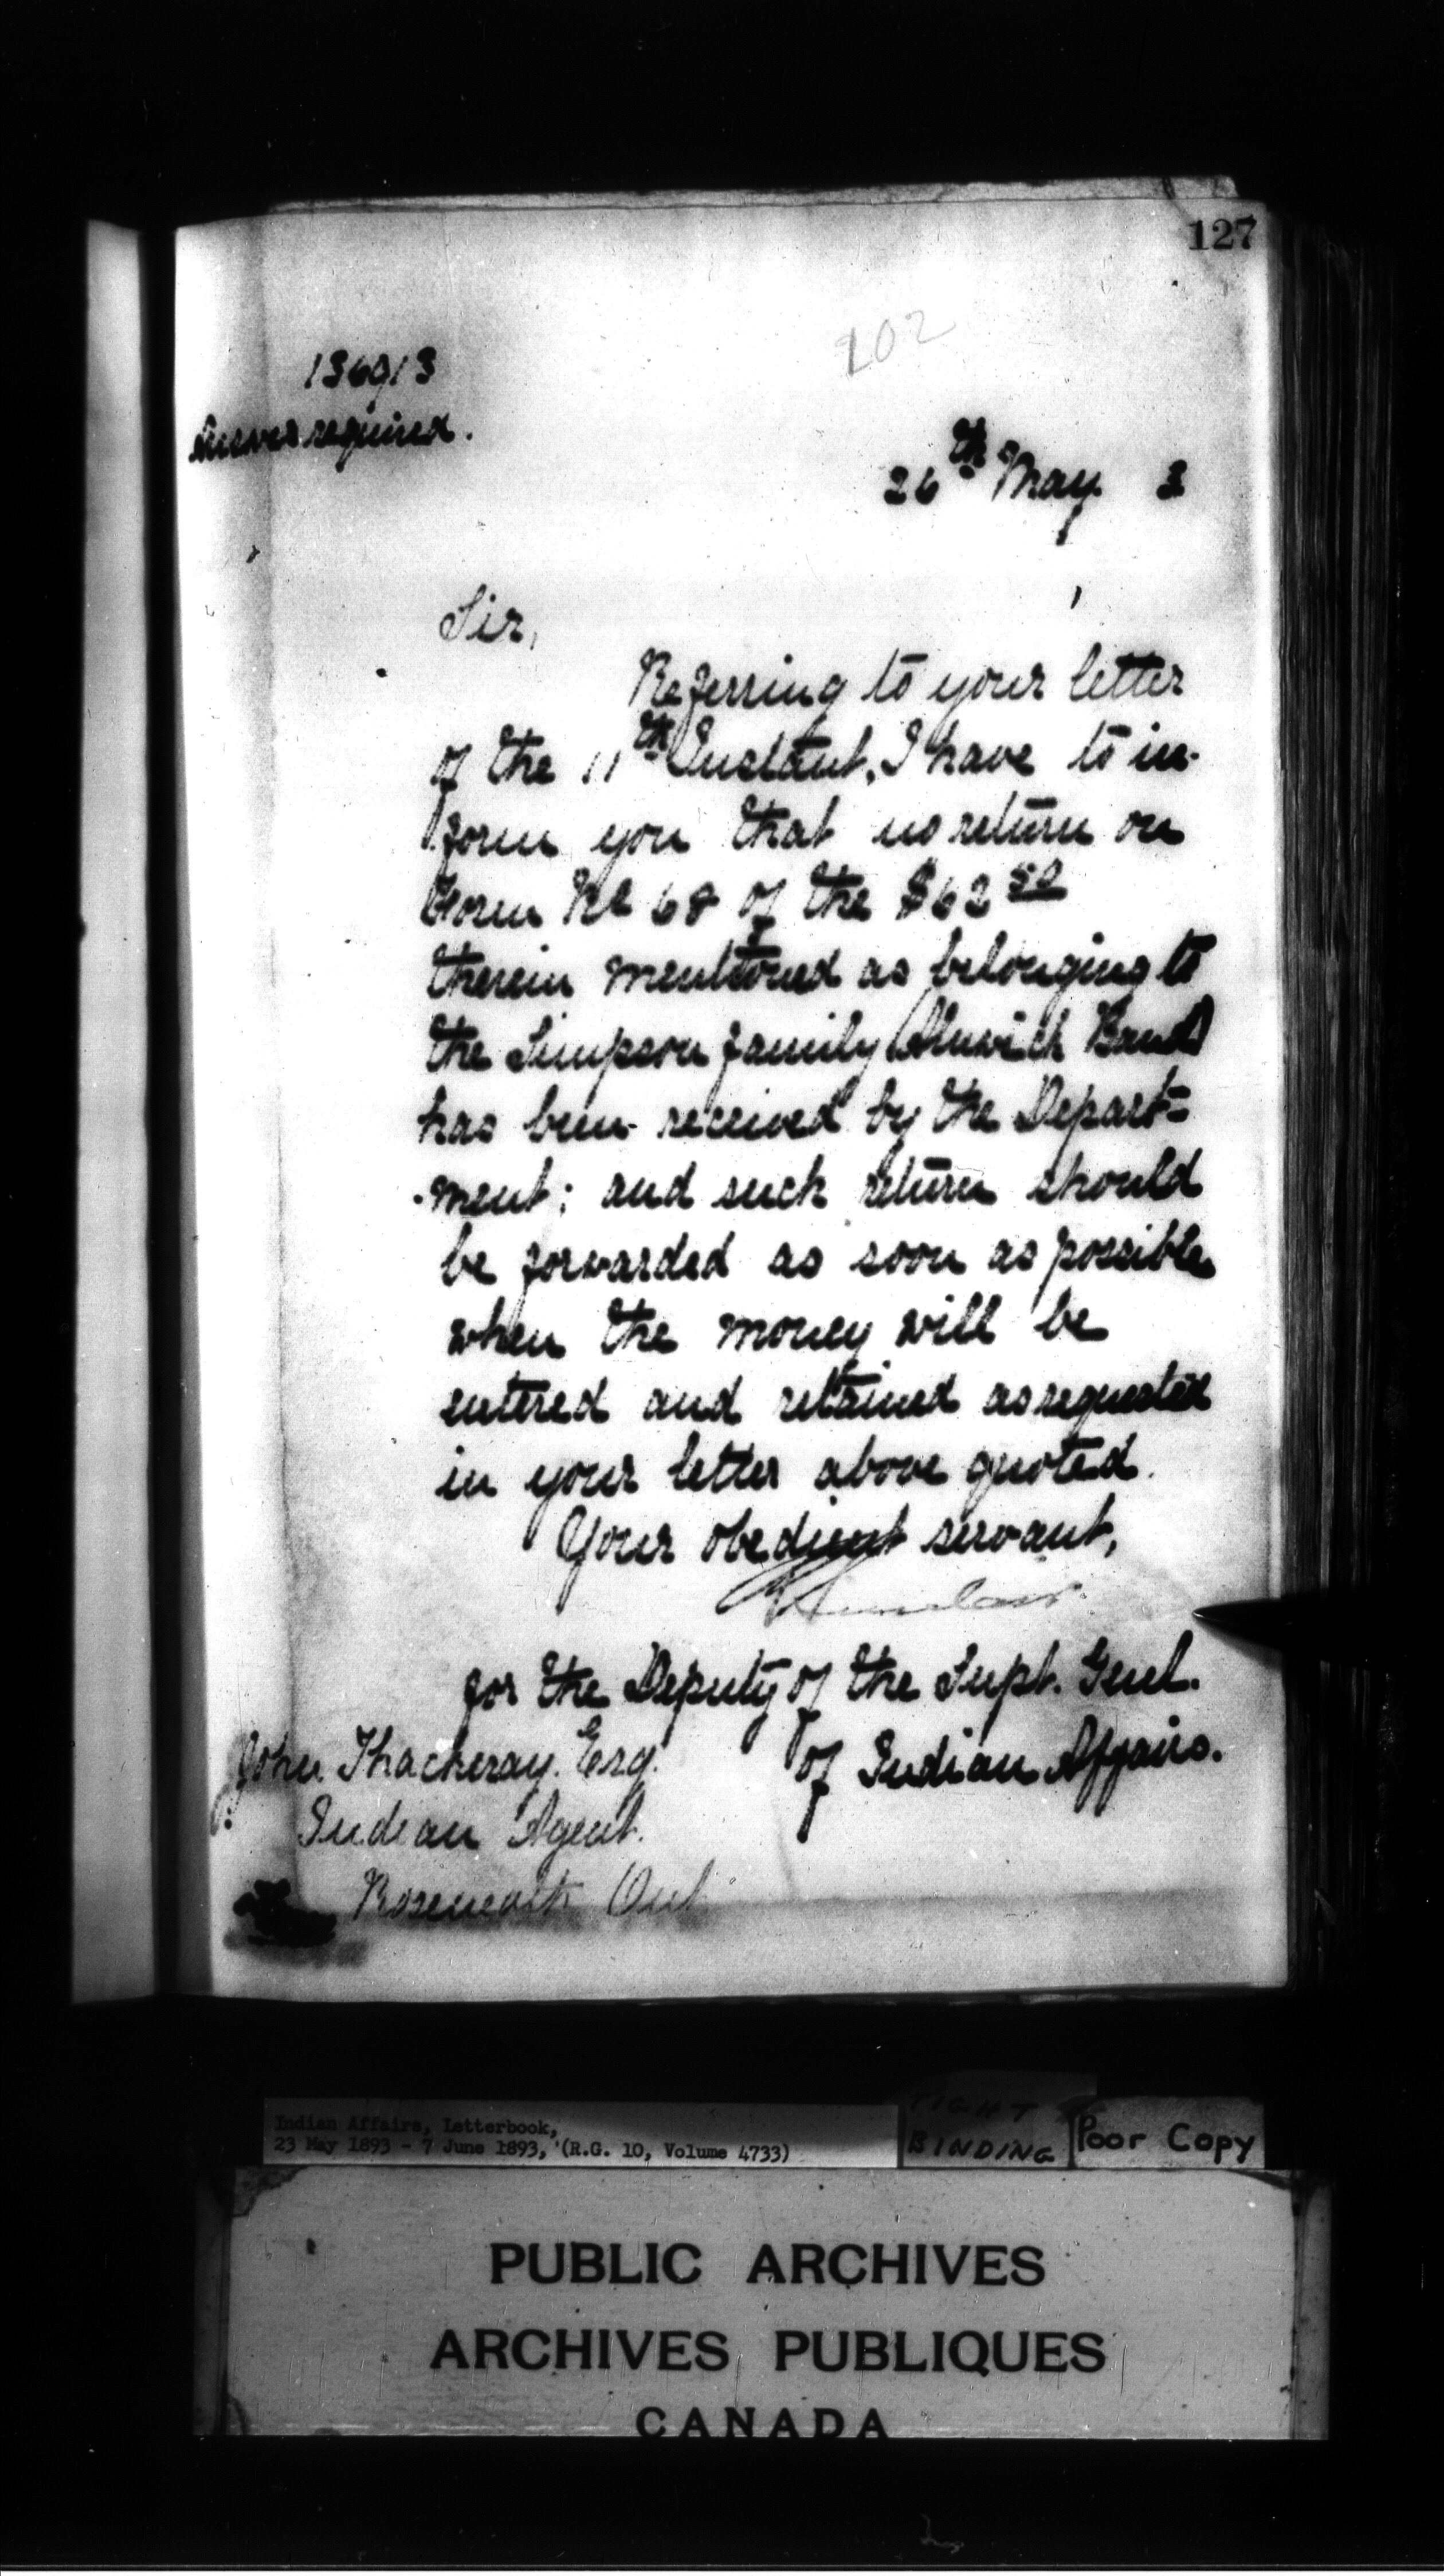 127
202
136913
Answer required.
26th May 3
Sir,
Referring to your letter
of the 11th Instant, I have to in-
form you that no return on
Form No 68 of the $62 50
therein mentioned as belonging to
the Simpson family (Alnwick Band)
has been received by the Depart=
-ment; and such return should
be forwarded as soon as possible
when the money will be
entered and retained as requested
in your letter above quoted.
Your obedient servant,
Sinclair.
for the Deputy of the Supt. Genl.
of Indian Affairs.
John Thackeray. Esq.
Indian Agent.
Roseneath Ont
Indian Affairs, Letterbook,
23 May 1893 - 7 June 1893, (R.G. 10, Volume 4733)
TIGHT
BINDING
Poor Copy
PUBLIC ARCHIVES
ARCHIVES PUBLIQUES
CANADA